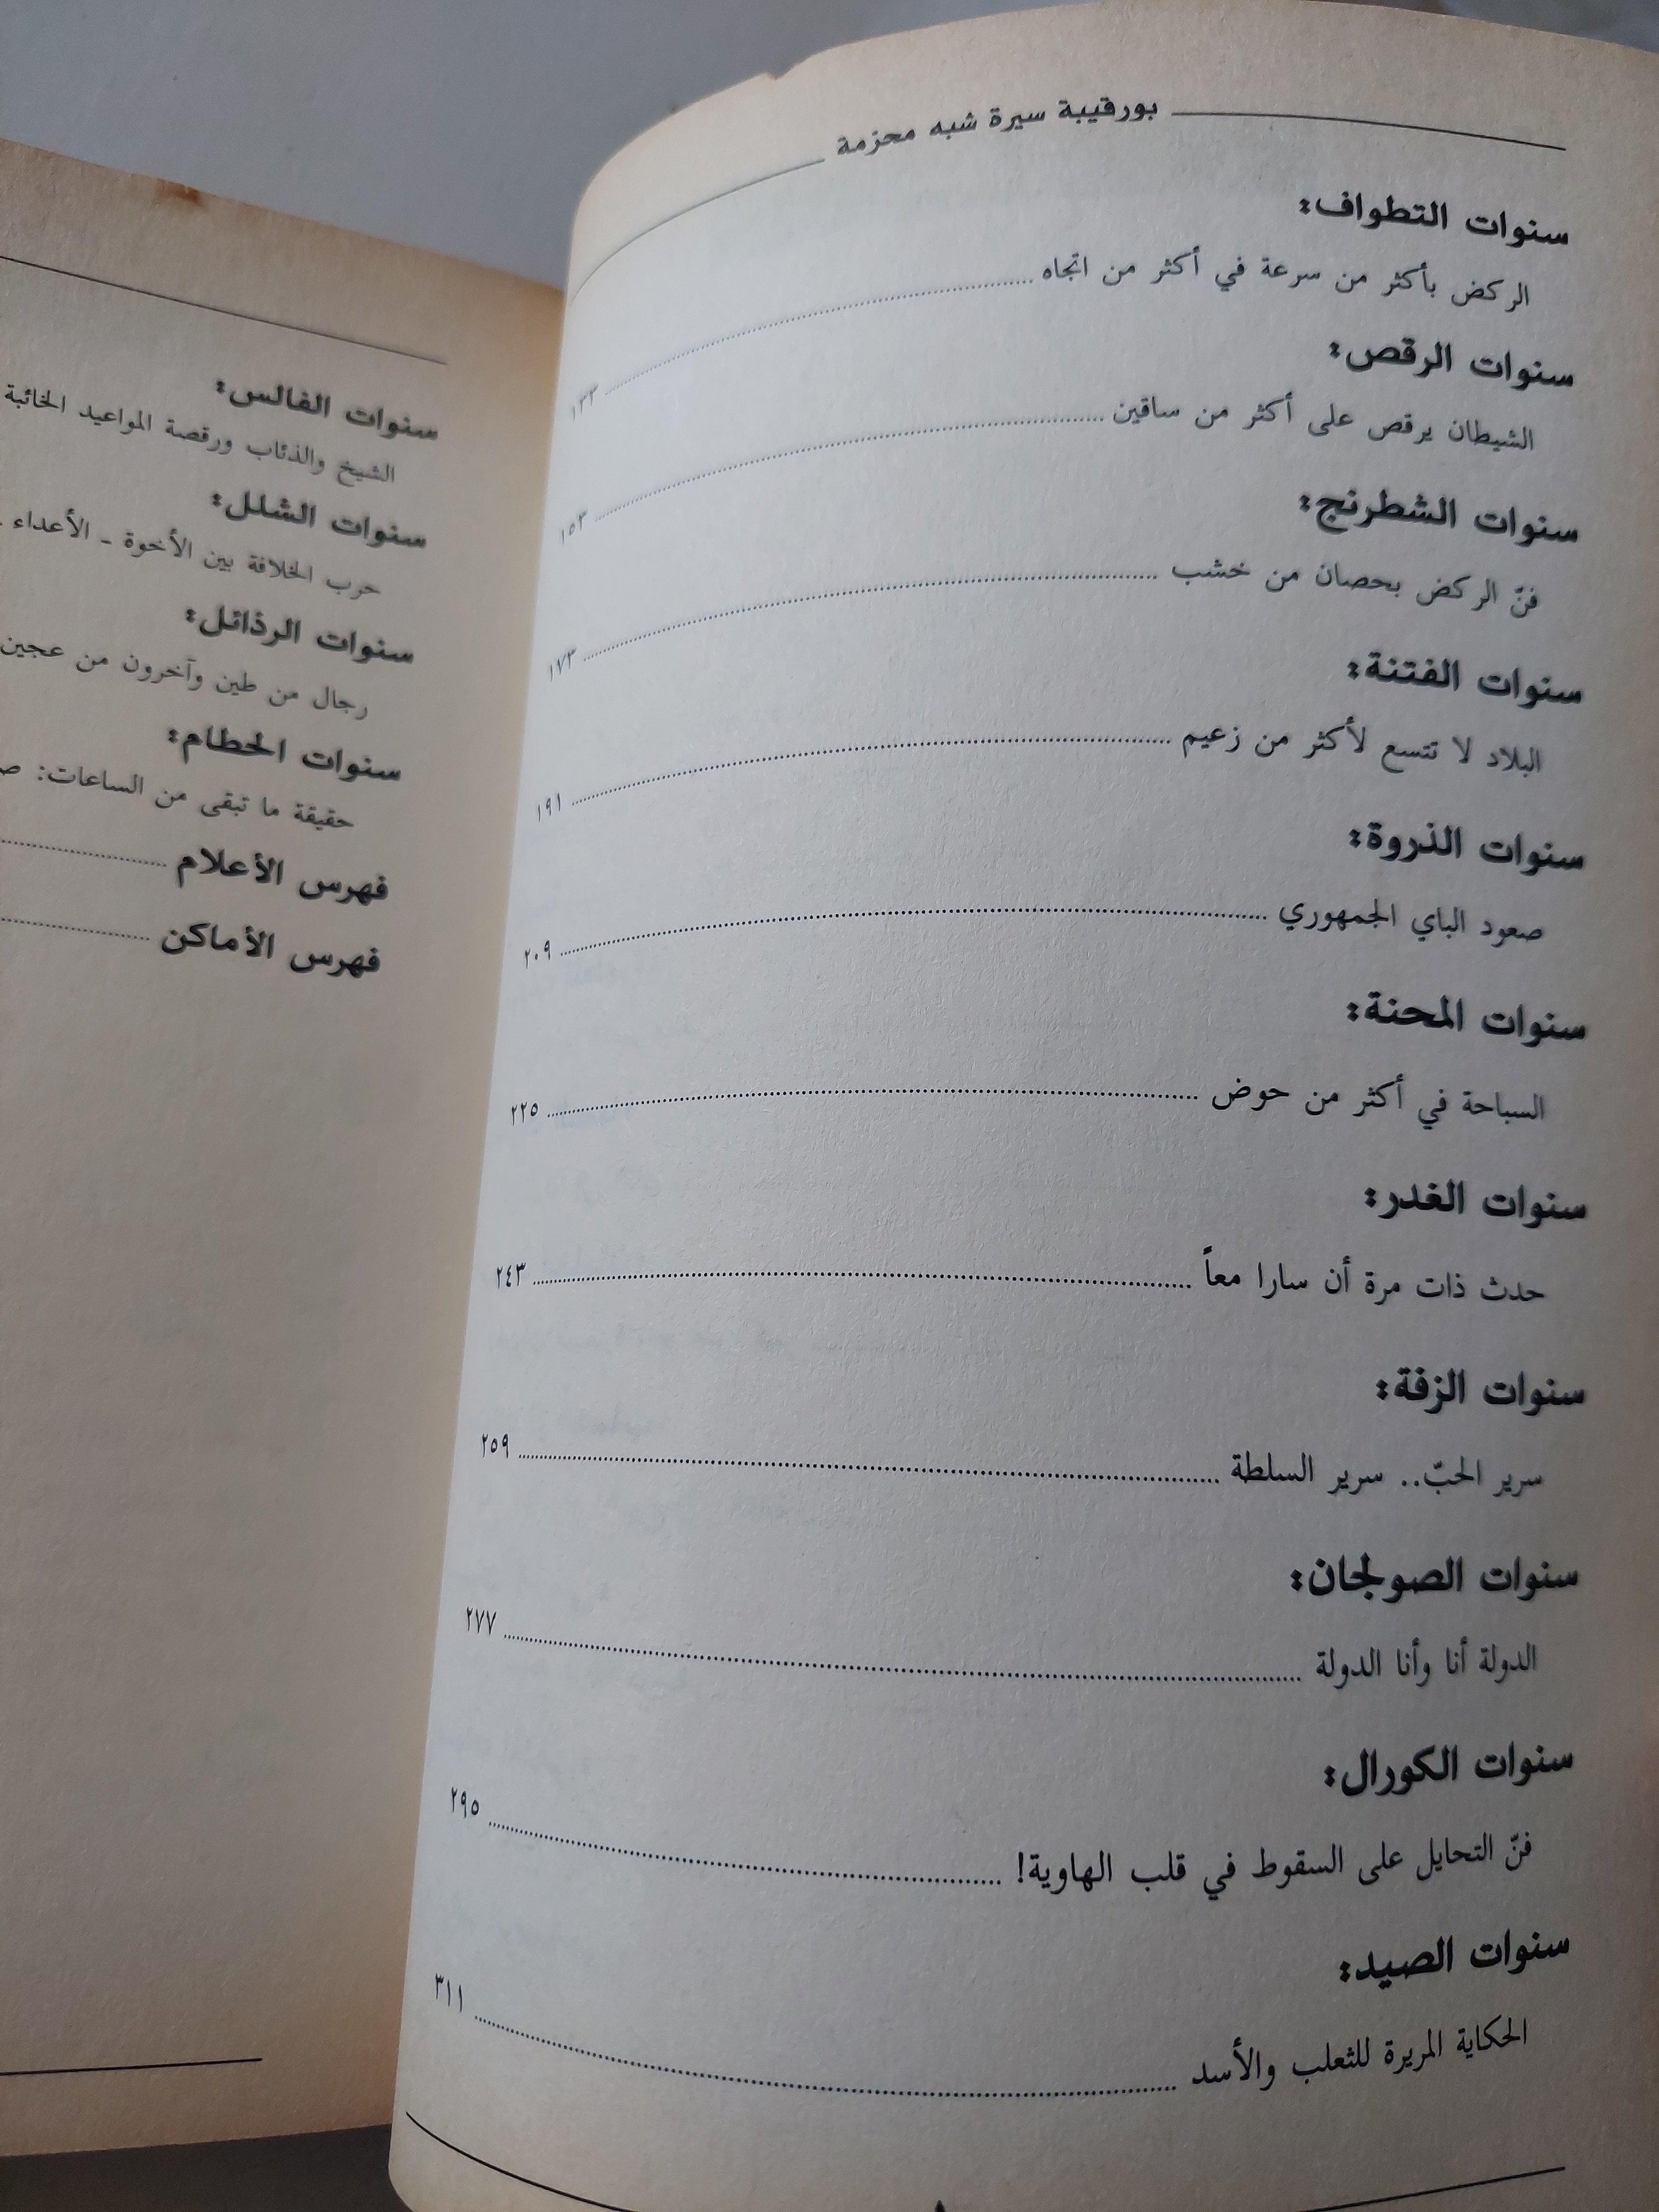 بورقيبة سيرة شبه محزمة
سنوات التطواف:
الركض بأكثر من سرعة في أكثر من اتجاه ........ ١٣٣
سنوات الرقص:
الشيطان يرقص على أكثر من ساقين ........ ١٥٣
سنوات الشطرنج:
فنّ الركض بحصان من خشب ........ ١٧٣
سنوات الفتنة:
البلاد لا تتسع لأكثر من زعيم ........ ١٩١
سنوات الذروة:
صعود الباي الجمهوري ........ ٢٠٩
سنوات المحنة:
السباحة في أكثر من حوض ........ ٢٢٥
سنوات الغدر:
حدث ذات مرة أن سارا معاً ........ ٢٤٣
سنوات الزفة:
سرير الحبّ.. سرير السلطة ........ ٢٥٩
سنوات الصولجان:
الدولة أنا وأنا الدولة ........ ٢٧٧
سنوات الكورال:
فنّ التحايل على السقوط في قلب الهاوية! ........ ٢٩٥
سنوات الصيد:
الحكاية المريرة للثعلب والأسد ........ ٣١١
سنوات الفالس:
الشيخ والذئاب ورقصة المواعيد الخائبة
سنوات الشلل:
حرب الخلافة بين الأخوة - الأعداء
سنوات الرذائل:
رجال من طين وآخرون من عجين
سنوات الحطام:
حقيقة ما تبقى من الساعات:
فهرس الأعلام ........
فهرس الأماكن ........